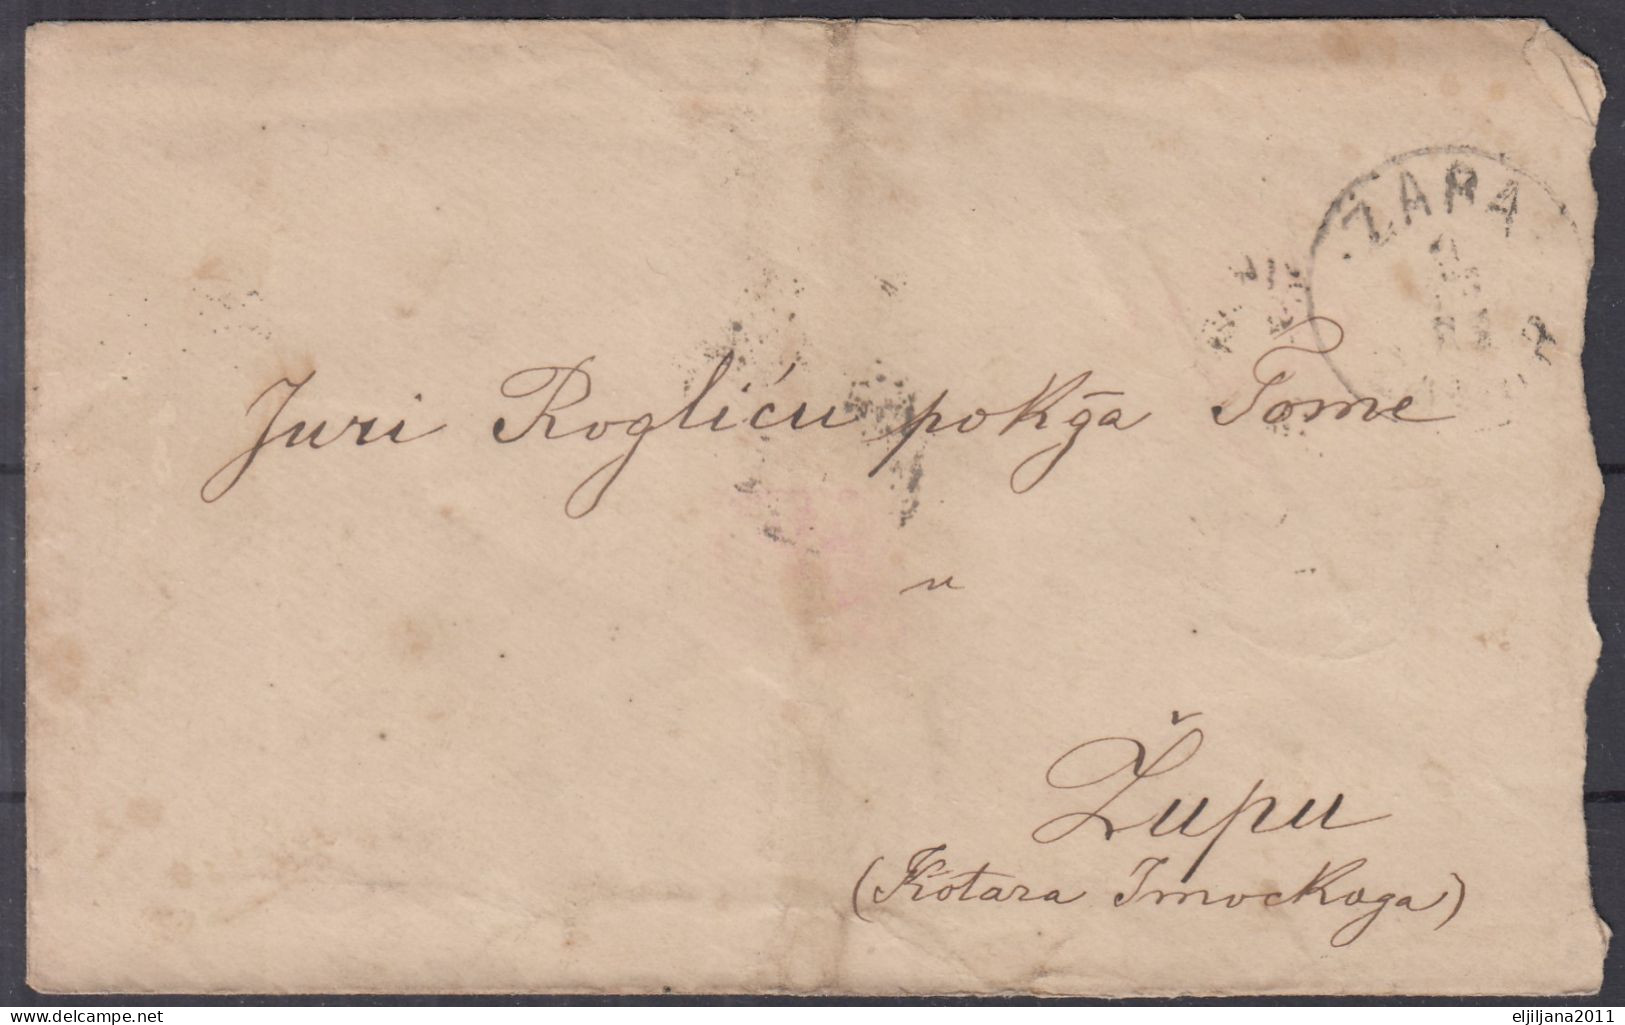 ZARA
Juri Rogliću pokg̃a Tome
u
Župu
(Kotara Imockoga)
delcampe.net
eljiljana2011